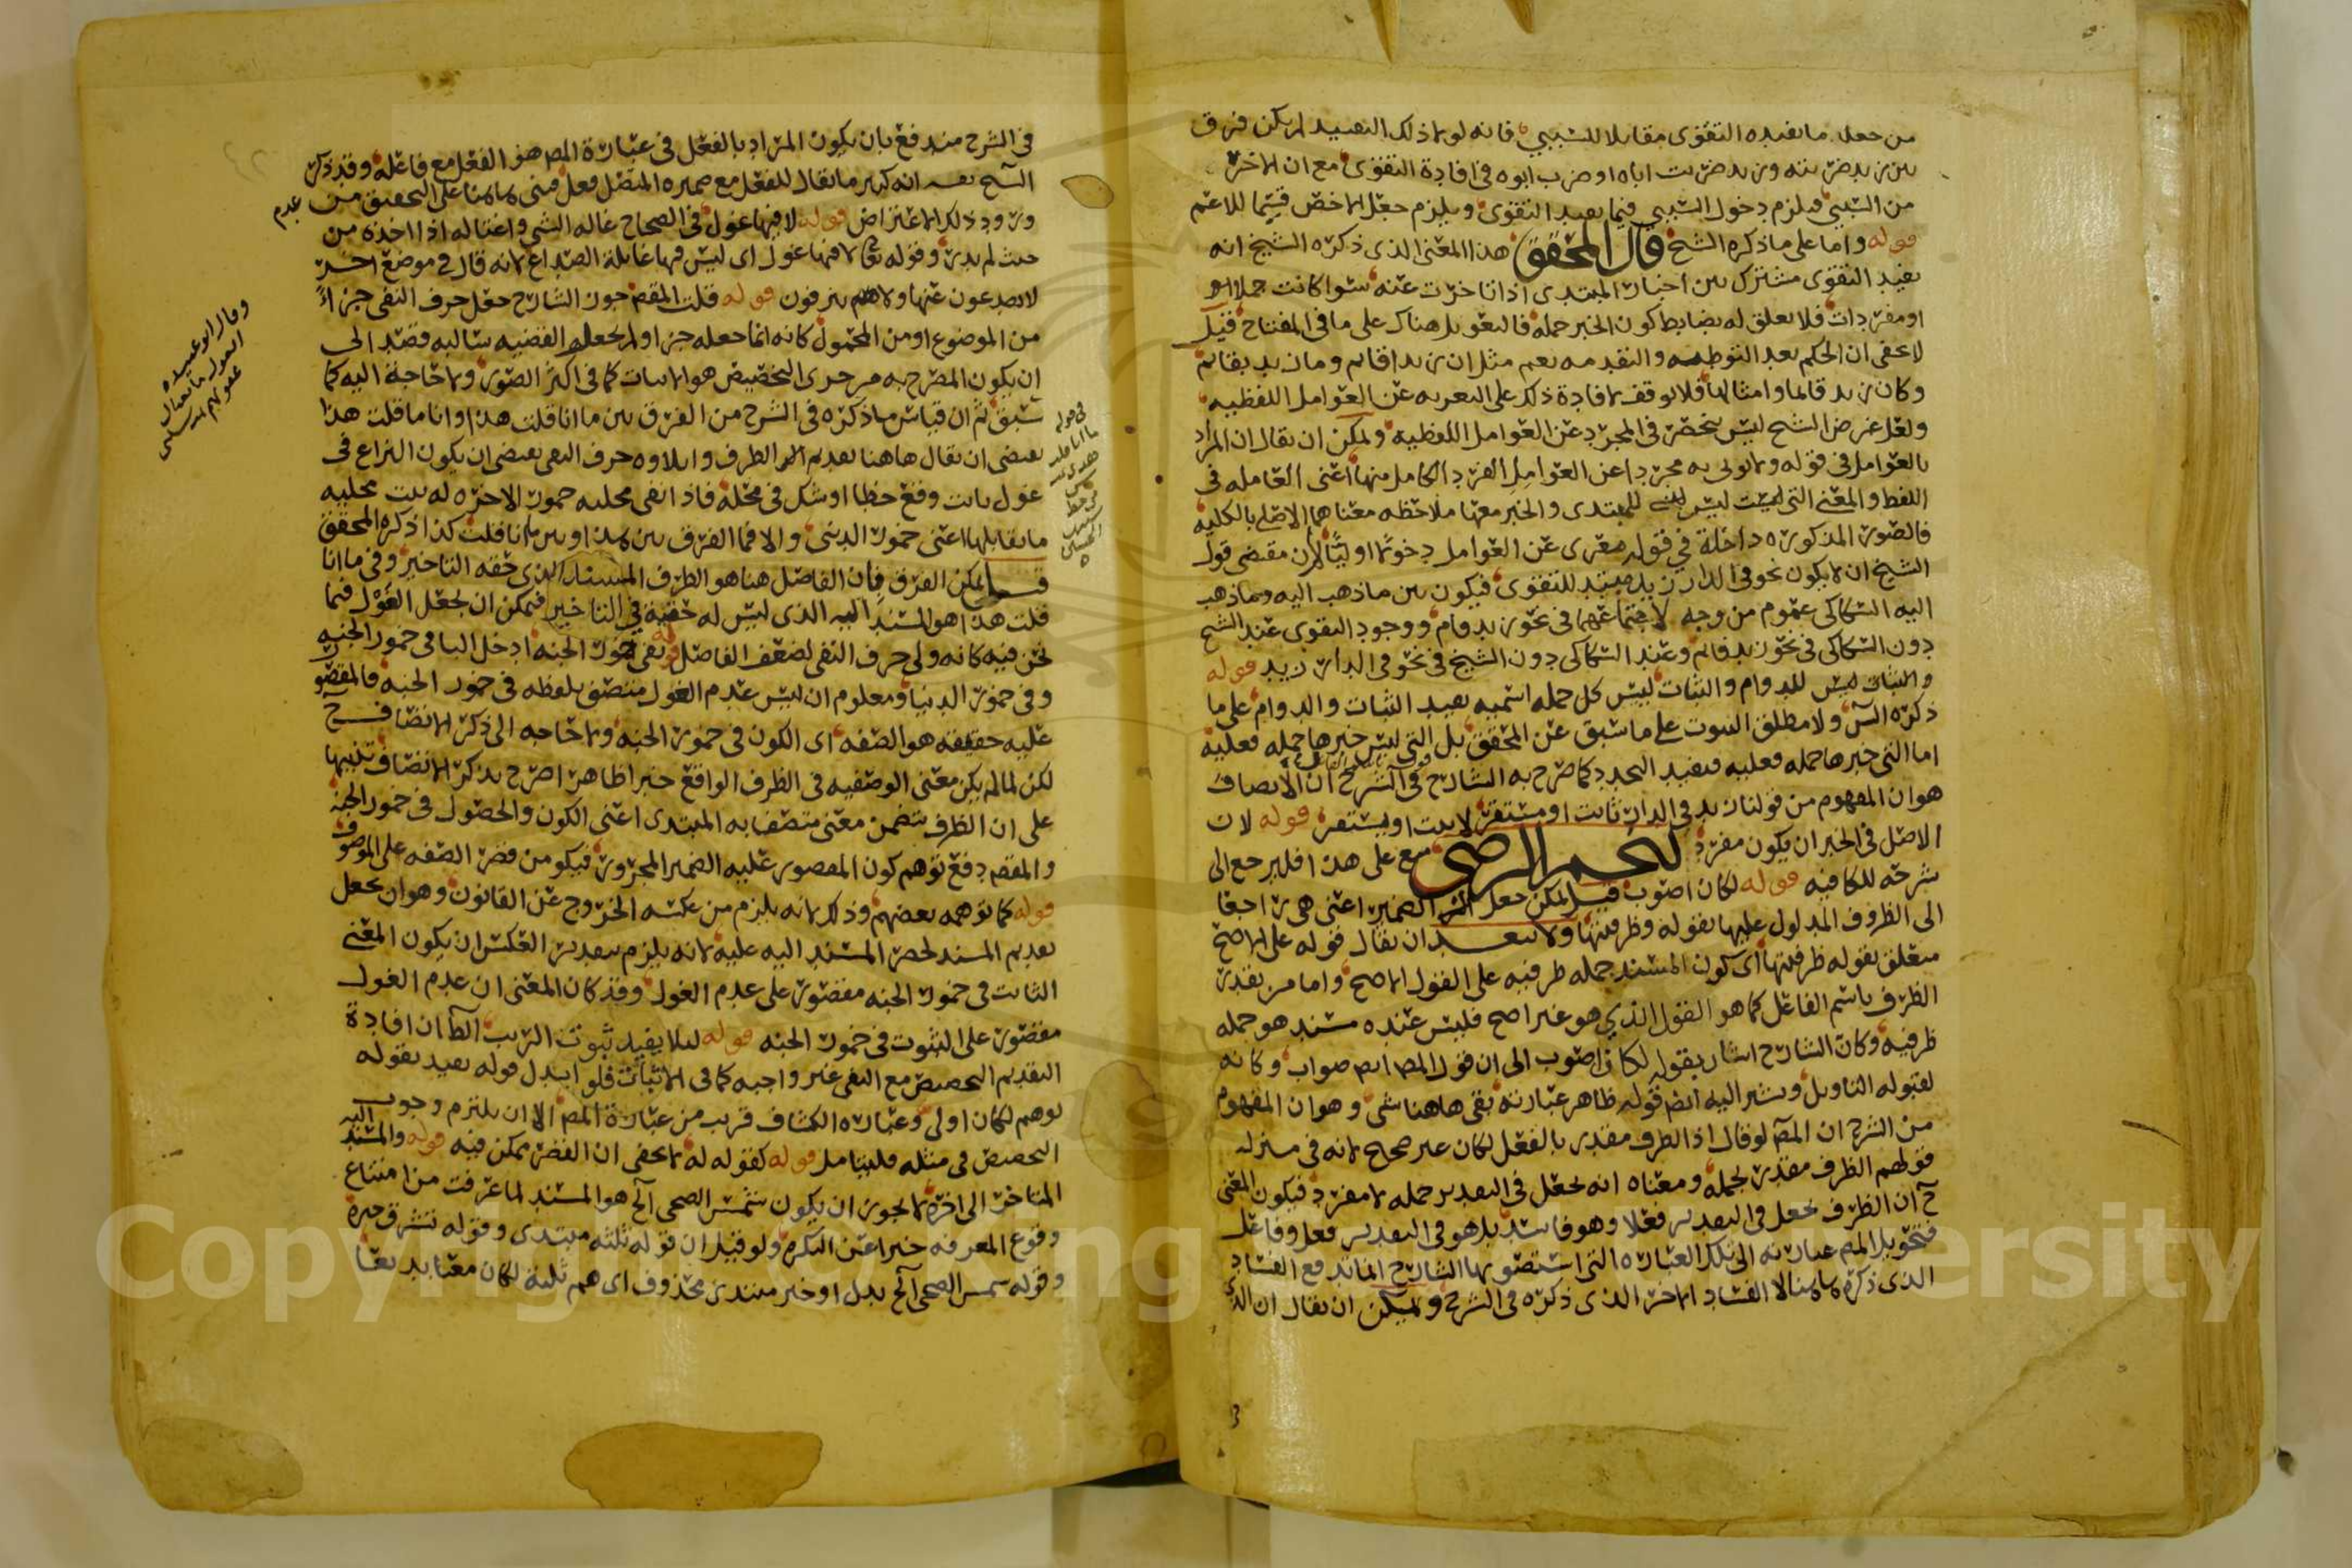 من جعل ما يفيده التقوى مقابلا للسببي فانه لولا ذلك التقييد لم يكن فرق
بين زيد ضربته وزيد ضربت اباه او ضرب ابوه في افادة التقوى مع ان الاخر
من السببي فيلزم دخول السببي فيما يفيد التقوى ويلزم جعل الاخص قسيما للاعم
قوله واما على ما ذكره الشيخ قال المحقق هذا المعنى الذي ذكره الشيخ انه
يفيد التقوى مشترك بين اخبار المبتدى اذا تاخرت عنه سوا كانت جملا او
او مفردات فلا تعلق له بضابط كون الخبر جمله فالتعويل هناك على ما في المفتاح قيل
لا يخفى ان الحكم بعد التوطيه والتقدمه يعم مثل ان زيدا قايم وما زيد بقايم
وكان زيد قايما وامثالها فلا توقف لافادة ذلك على التعريه عن العوامل اللفظيه
ولعل غرض الشيح ليس ينحصر في المجرد عن العوامل اللفظيه ويمكن ان يقال ان المراد
بالعوامل في قوله ولا يؤتى به مجردا عن العوامل الفرد الكامل منها اعني العامله في
اللفظ والمعنى التي ليست ليس للمبتدى والخبر معها ملاحظه معناهما الاصلي بالكليه
فالصور المذكوره داخلة في قوله معرى عن العوامل دخولا اوليا لان مقتضى قول
الشيخ ان لا يكون نحو في الدار زيد مفيد للتقوى فيكون بين ما ذهب اليه وما ذهب
اليه السكاكي عموم من وجه لاجتماعهما في نحو زيد قام ووجود التقوى عند الشيح
دون السكاكي في نحو زيد قايم وعند السكاكي دون الشيخ في نحو في الدار زيد قوله
والثبات ليس للدوام والثبات ليس كل جمله اسميه يفيد الثبات والدوام على ما
ذكره ولا مطلق الثبوت على ما سبق عن المحقق بل التي ليس خبرها جمله فعليه
اما التي خبرها جمله فعليه فيفيد التجدد كما صرح به الشارح في الشرح ان الانصاف
هو ان المفهوم من قولنا زيد في الدار ثابت او مستقر لا ثبت او يستقر قوله لان
الاصل في الخبر ان يكون مفردا نجم الرضي منع على هذا فليرجع الى
شرحه للكافيه قوله لكان اصوب قيل يمكن جعل الضمير اعني هي راجعا
الى الظروف المدلول عليها بقوله وظرفيتها ولا يبعد ان يقال قوله على الاصح
متعلق بقوله ظرفيتها اي كون المسند جمله ظرفيه على القول الاصح واما من يقدر
الظرف باسم الفاعل كما هو القول الذي هو غير اصح فليس عنده مسند هو جمله
ظرفيه وكان الشارح اشار بقوله لكان اصوب الى ان قول المص ايضا صواب وكانه
لقبوله التاويل ويشير اليه ايضا قوله ظاهر عبارته بقى هاهنا شي وهو ان المفهوم
من الشرح ان المص لو قال اذ الظرف مقدر بالفعل لكان غير صحيح لانه في منزله
قولهم الظرف مقدر بجمله ومعناه انه يجعل في التقدير جمله لا مفرد فيكون المعنى
ح ان الظرف يجعل في التقدير فعلا وهو فاسد بل هو في التقدير فعل وفاعل
فتحويل المص عبارته الى تلك العباره التي استصوبها الشارح انما تدفع الفساد
الذي ذكره هاهنا لا الفساد الاخر الذي ذكره في الشرح ويمكن ان يقال ان الذي
في الشرح مندفع بان يكون المراد بالفعل في عبارة المص هو الفعل مع فاعله وقد ذكر
الشيح نفسه انه كثير ما يقال للفعل مع ضميره المتصل فعل فبنى هاهنا على التحقيق من
عدم
ورود ذلك الاعتراض قوله لا فيها غول في الصحاح غاله الشي واغتاله اذا اخذه من
حيث لم يدر وقوله تع لا فيها غول اي ليس فيها غايلة الصداع لانه قال في موضع اخر
لا يصدعون عنها ولا هم ينزفون قوله قلت المقصود جوز الشارح جعل حرف النفي جزءا
من الموضوع او من المحمول كانه انما جعله جزا ولم يجعل القضيه سالبه قصد الى
ان يكون المصرح به من جزى التخصيص هو الاثبات كما في اكثر الصور ولا حاجة اليه كما
سبق ثم ان قياس ما ذكره في الشرح من الفرق بين ما انا قلت هذا وانا ما قلت هذا
يقتضي ان يقال هاهنا تقديم الظرف وايلاوه حرف النفي يقتضي ان يكون النزاع في
غول ثابت وقع خطا او شك في محله فاذا نفى محليه خمور الاخره له ثبت محليه
ما يقابلها اعني خمور الدنيى والا فما الفرق بين هذا وبين ما انا قلت كذا ذكره المحقق
قيل يمكن الفرق فان الفاصل هنا هو الظرف المسند الذي حقه التاخير وفي ما انا
قلت هذا هو المسند اليه الذي ليس له حقيه في التاخير فيمكن ان يجعل الغول فيما
نحن فيه كانه ولى حرف النفي لضعف الفاصل قوله نفى خمور الجنه ادخل البا في خمور الجنه
وفي خمور الدنيا ومعلوم ان ليس عدم الغول متصف بلفظه في خمور الجنه فالمقصور
عليه حقيقه هو الصفه اي الكون في خمور الجنه ولا حاجه الى ذكر الاتصاف ح
لكن لما لم يكن معنى الوصفيه في الظرف الواقع خبرا ظاهرا صرح بذكر الاتصاف تنبيها
على ان الظرف يتضمن معنى متصفا به المبتدى اعني الكون والحصول في خمور الجنه
والمقصود دفع توهم كون المقصور عليه الضمير المجرور فيكون من قصر الصفه على الموصوف
قوله كما توهمه بعضهم وذلك لانه يلزم من عكسه الخروج عن القانون وهو ان يجعل
تقديم المسند لحصر المسند اليه عليه لانه يلزم بتقدير العكس ان يكون المعنى
الثابت في خمور الجنه مقصور على عدم الغول وقد كان المعنى ان عدم الغول
مقصور على الثبوت في خمور الجنه قوله ليلا يفيد ثبوت الريب الظاهر ان افادة
التقديم التخصيص مع النفي غير واجبه كما في الاثبات فلو ابدل قوله يفيد بقوله
توهم لكان اولى وعباره الكشاف قريب من عبارة المص الا ان يلتزم وجوب
التخصيص في مثله فليتامل قوله كقوله له لا يخفى ان القصر ممكن فيه قوله والمسند اليه
المتاخر الى اخره لا يجوز ان يكون شمس الضحى الح هو المسند لما عرفت من امتناع
وقوع المعرفه خبرا عن النكره ولو قيل ان قوله ثلثه مبتدى وقوله تشرق خبره
وقوله شمس الضحى الح بدل او خبر مبتدى محذوف اى هم ثلثة لكان معنا بديعا
وقال ابو عبيده
الغول ما يغتال
عقولهم